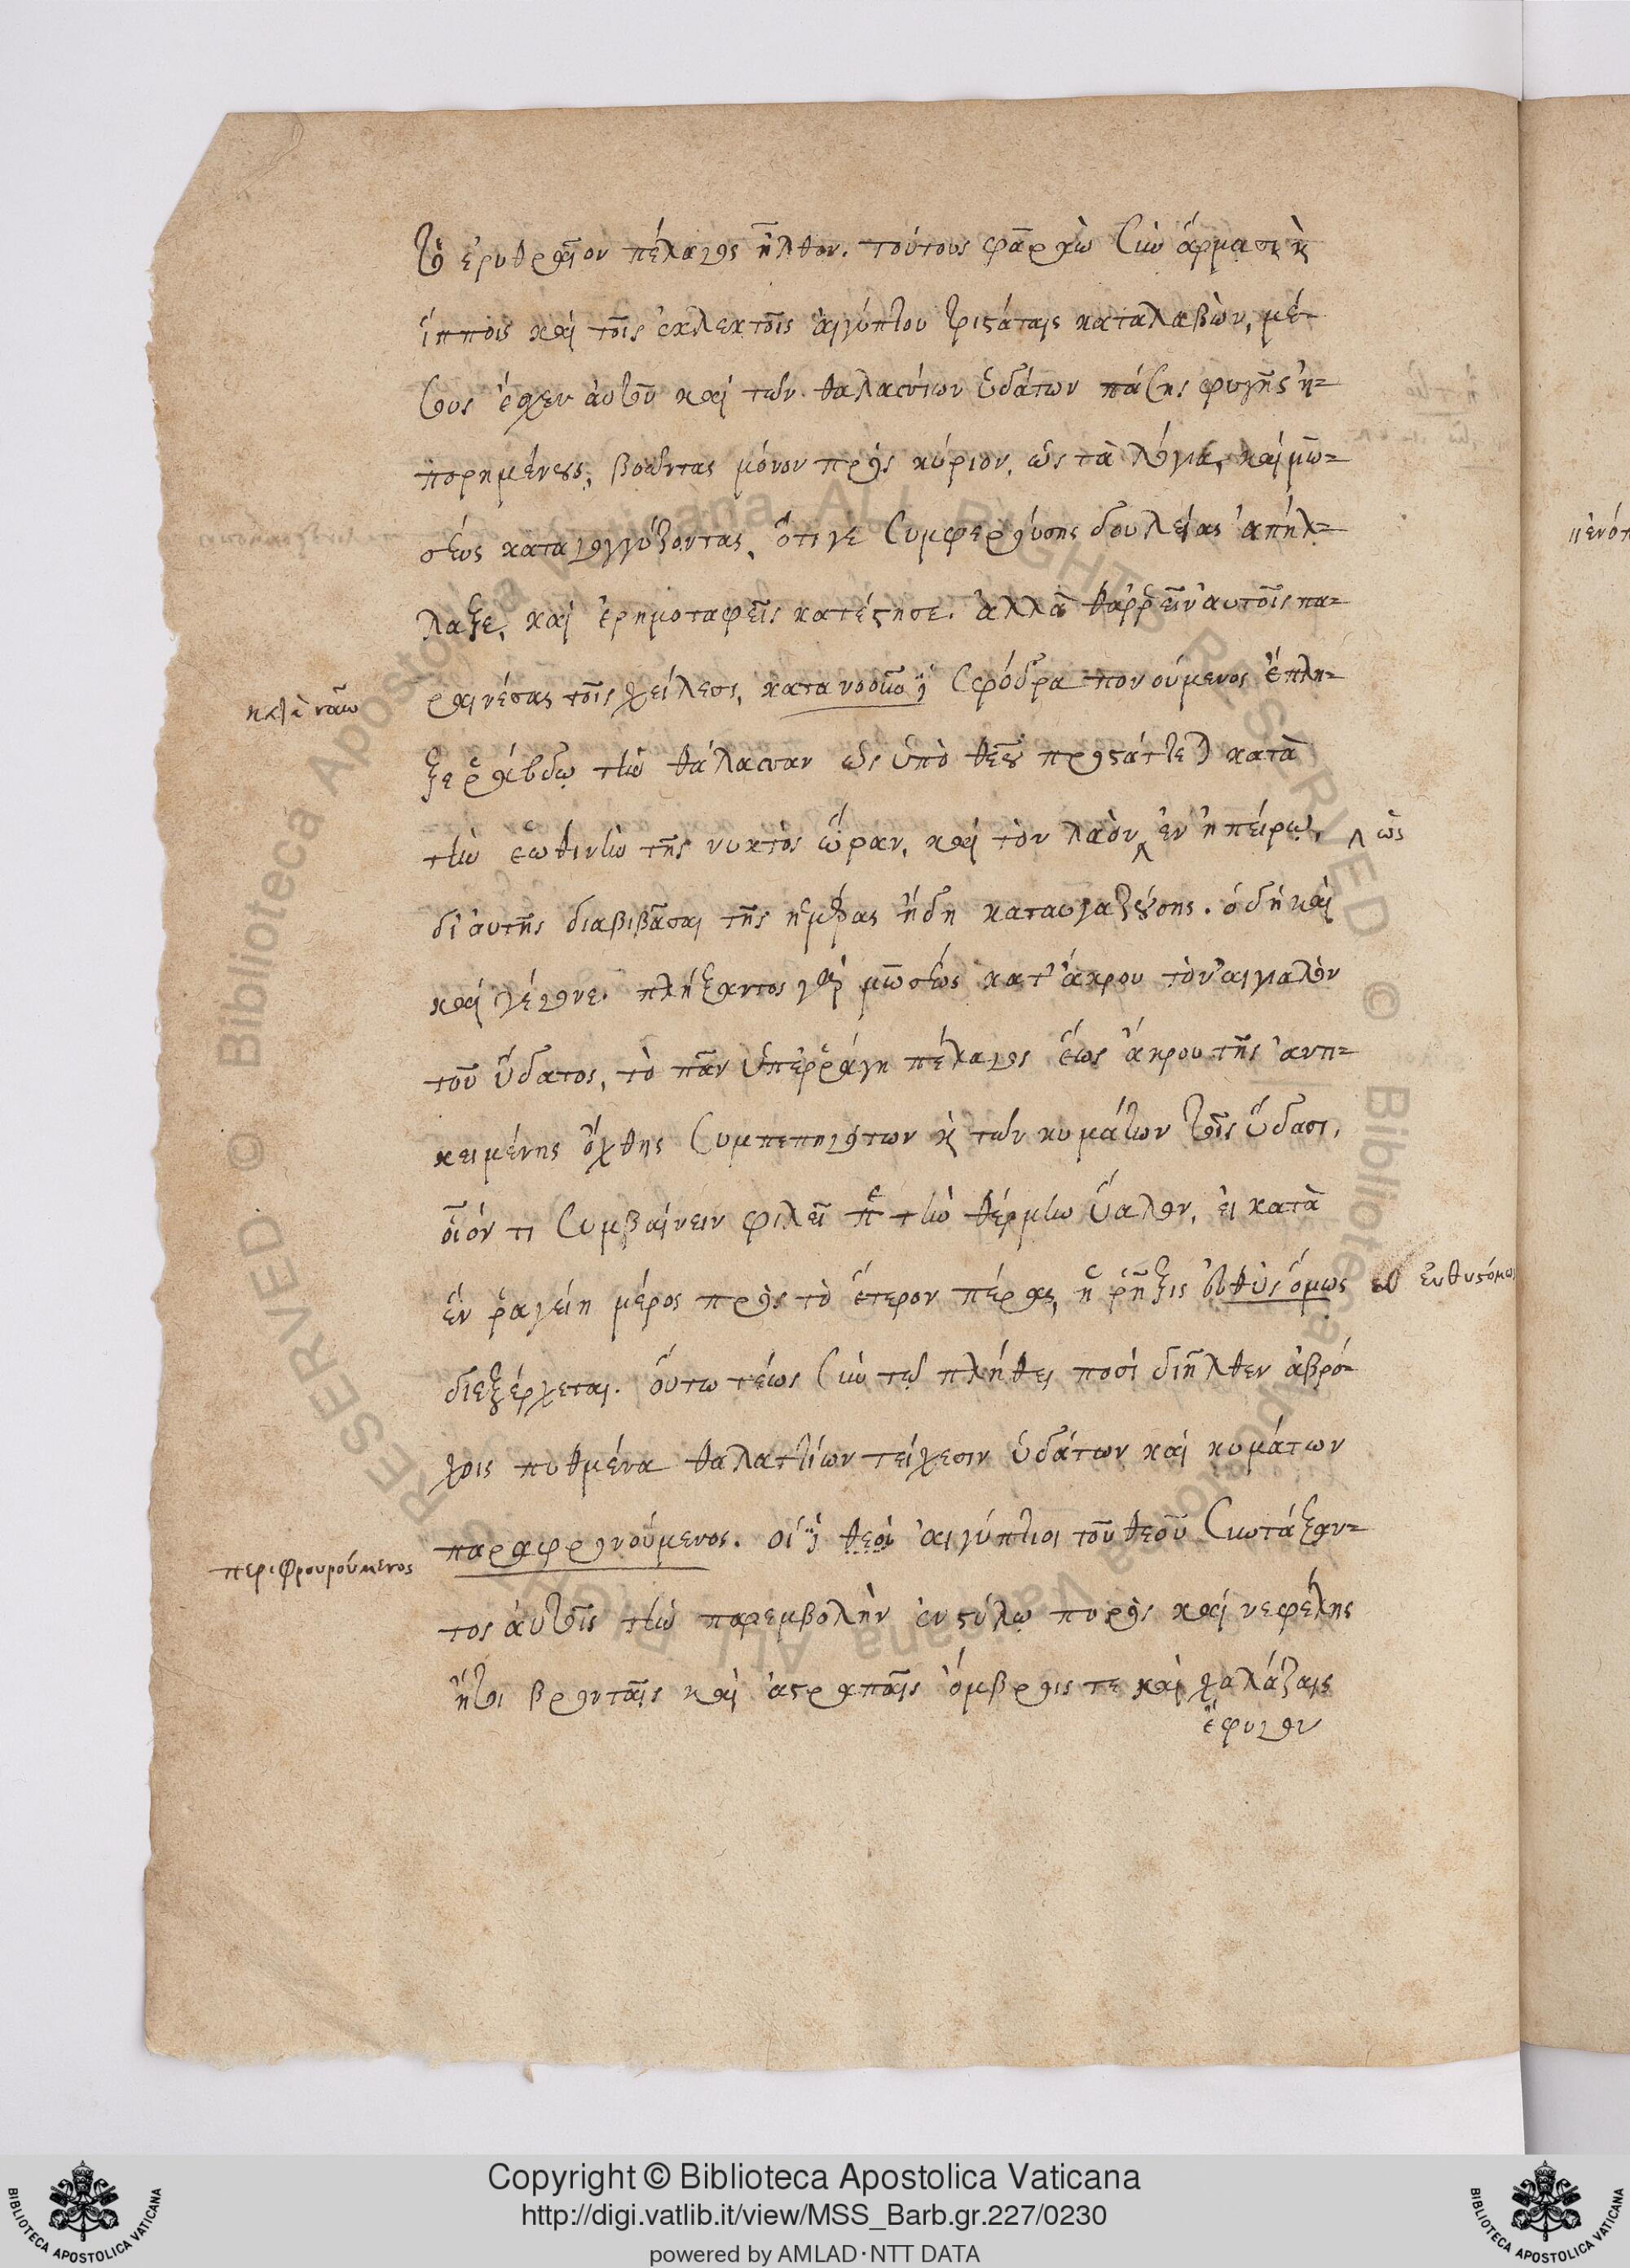 τὸ ἐρυθραῖον πέλαγος ἦλθον. τούτους φαραὼ σὺν ἅρμασι κ̀
ἵπποις καὶ τοῖς ἐκλεκτοῖς αἰγύπτου τριστάταις καταλαβὼν, μέ-
σους εἶχεν αὐτοῦ καὶ τῶν θαλασσίων ὑδάτων πάσης φυγῆς ἠ-
πορημένους, βοῶντας μόνον πρὸς κύριον, ὡς τὰ λόγια, καὶ μω-
σέως καταγογγύζοντας, ὅτι γε συμφερούσης δουλείας ἀπήλ-
λαξε, καὶ ἐρημοταφεῖς κατέστησε. ἀλλὰ θαῤῥεῖν αὐτοῖς πα-
ραινέσας τοῖς χείλεσι, σφόδρα πονούμενος ἔπλη-
ξε ῥάβδῳ τὴν θάλασσαν ὡς ὑπὸ θεοῦ προστάττεται κατὰ
τὴν ἑωθινὴν τῆς νυκτὸς ὥραν, καὶ τὸν λαὸν ἐν ἠπείρῳ, ὡς
δι' αὐτῆς διαβιβᾶσαι τῆς ἡμέρας ἤδη καταυγαζούσης. ὃ δὴ καὶ
καὶ γέγονε. πλήξαντος γὰρ μωσέως κατ' ἄκρου τὸν αἰγιαλὸν
τοῦ ὕδατος, τὸ πᾶν ὑπεῤῥάγη πέλαγος ἕως ἄκρου τῆς ἀντι-
κειμένης ὄχθης συμπεπηγότων κ̀ τῶν κυμάτων τοῖς ὕδασι,
οἷόν τι συμβαίνειν φιλεῖ περὶ τὴν θέρμην ὕαλον, εἰ κατὰ
ἓν ῥαγείη μέρος πρὸς τὸ ἕτερον πέρας, ἡ ῥῆξις εὐθὺς ὅμως εὐθυστόμως
διεξέρχεται. οὕτω τέως σὺν τῷ πλήθει ποσὶ διῆλθεν ἀβρό-
χοις πυθμένα θαλαττίων τείχεσιν ὑδάτων καὶ κυμάτων
παραφρονούμενος. οἱ δὲ θεοὶ αἰγύπτιοι τοῦ θεοῦ συνταξαν-
περιφρουρούμενος
τος αὐτοῖς τὴν παρεμβολὴν ἐν στύλῳ πυρὸς καὶ νεφέλης
ἤτοι βρονταῖς καὶ ἀστραπαῖς ὄμβροις τε καὶ χαλάζαις
ἔφυγον
Copyright © Biblioteca Apostolica Vaticana
http://digi.vatlib.it/view/MSS_Barb.gr.227/0230
powered by AMLAD·NTT DATA